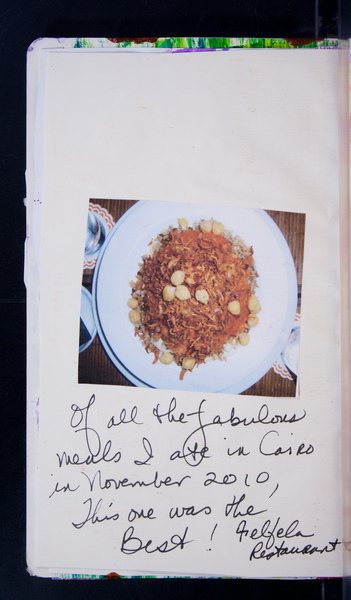 Of all the fabulous
meals I ate in Cairo
in November 2010,
This one was the
Best! Felfela
Restaurant